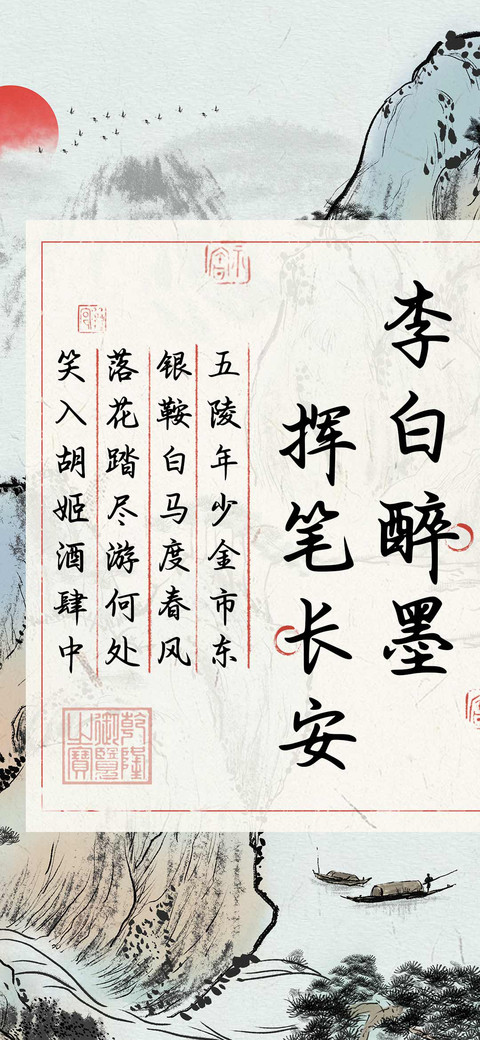 李白醉墨
挥笔长安
五陵年少金市东
银鞍白马度春风
落花踏尽游何处
笑入胡姬酒肆中
乾隆
御览
之宝